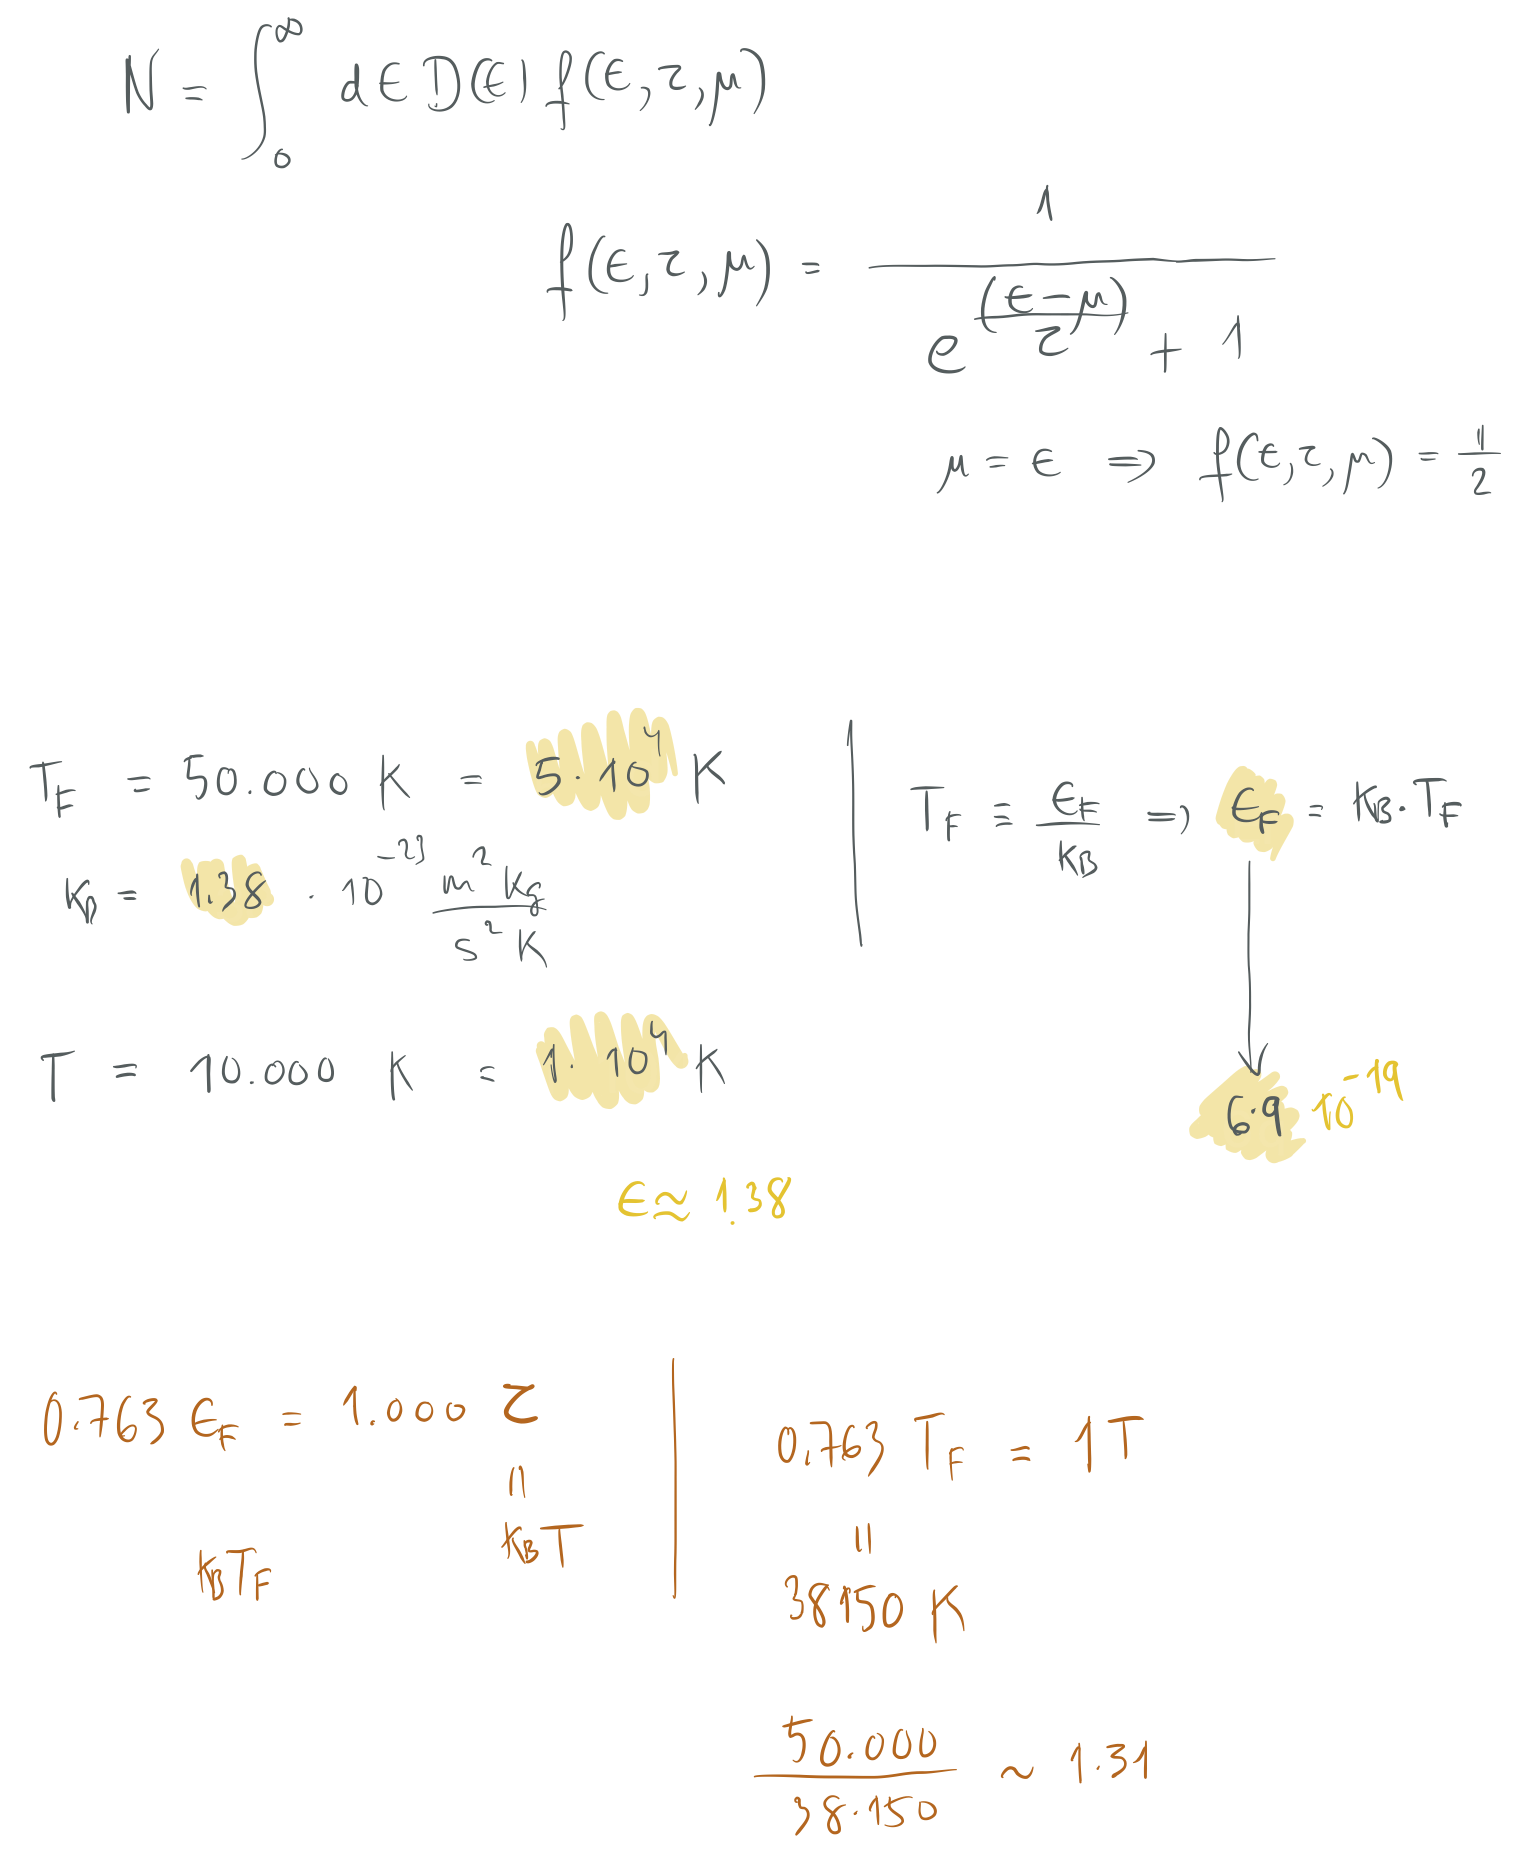 N = ∫₀^∞ dϵ D(ϵ) f(ϵ,τ,μ)
f(ϵ,τ,μ) = 1 / (e^((ϵ-μ)/τ) + 1)
μ = ϵ ⇒ f(ϵ,τ,μ) = 1/2
T_F = 50.000 K = 5·10⁴ K
k_B = 1.38 · 10⁻²³ m² kg / s² K
T = 10.000 K = 1·10⁴ K
T_F ≡ ϵ_F / k_B ⇒ ϵ_F = k_B · T_F
6.9 10⁻¹⁹
ϵ ≈ 1.38
0.763 ϵ_F = 1.000 τ
=
k_B T_F
k_B T
0.763 T_F = 1 T
=
38150 K
50.000 / 38.150 ~ 1.31